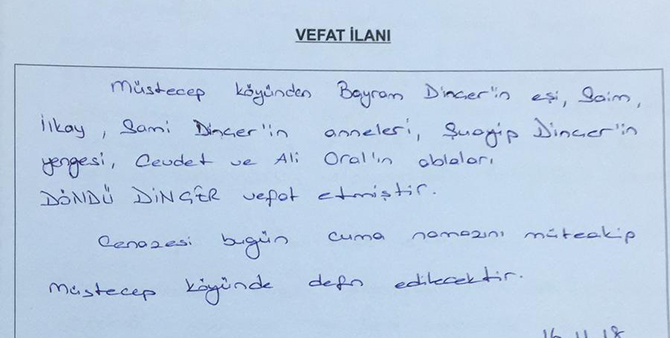 VEFAT İLANI
Müstecep köyünden Bayram Dinçer'in eşi, Saim,
İlkay, Sami Dinçer'in anneleri, Şuayip Dinçer'in
yengesi, Cevdet ve Ali Oral'ın ablaları
DÖNDÜ DİNÇER vefat etmiştir.
Cenazesi bugün cuma namazını müteakip
Müstecep köyünde defn edilecektir.
16.11.18